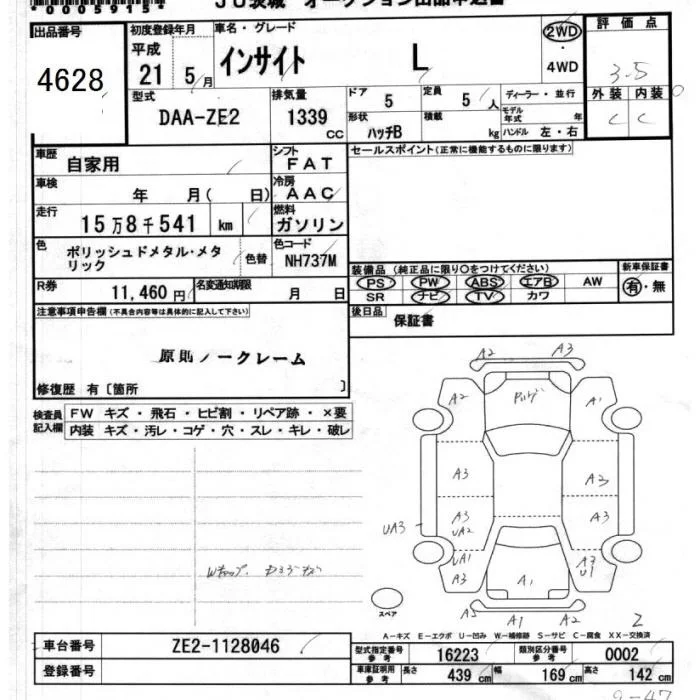 *0005915*
JU茨城 オークション出品申込書
出品番号
4628
初度登録年月
平成
21 5月
車名・グレード
インサイト L
2WD
・
4WD
評価点
3.5
外装 内装
C C
型式
DAA-ZE2
排気量
1339
CC
ドア 5
定員 5人
形状
ハッチB
積載 kg
ディーラー・並行
モデル年式 年
ハンドル 左・右
車歴 自家用
シフト
FAT
車検 年 月( 日)
冷房
AAC
走行 15万8千541 km
燃料
ガソリン
色 ポリッシュドメタル・メタリック
色替
色コード
NH737M
R券 11,460円
名変通知期限 月 日
セールスポイント(正常に機能するものに限ります)
装備品 (純正品に限り○をつけてください)
PS PW ABS エアB AW
SR ナビ TV カワ
新車保証書
有・無
後日品
保証書
注意事項申告欄(不具合内容等は具体的に記入して下さい)
原則ノークレーム
修復歴 有〔箇所 〕
検査員記入欄
FW キズ・飛石・ヒビ割・リペア跡・×要
内装 キズ・汚レ・コゲ・穴・スレ・キレ・破レ
A2 A3
A2 A1
A3 A2
A3 A3
UA2
UA3
UA1 A3
A3 U1
A1
A5 A1 A2
スペア
A-キズ E-エクボ U-凹み W-補修跡 S-サビ C-腐食 XX-交換済
車台番号 ZE2-1128046
登録番号
型式指定番号
参考
16223
類別区分番号
参考
0002
車庫証明用
参考
長さ 439 cm 幅 169 cm 高さ 142 cm